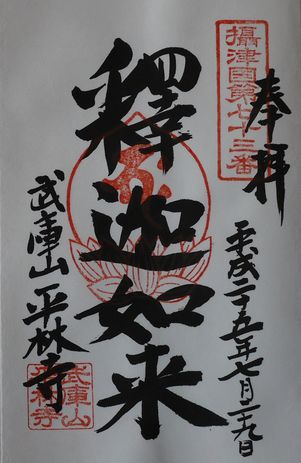 奉拝
攝津国第七十三番
平成二十五年七月二十九日
釋迦如来
武庫山 平林寺
武庫山
平林寺